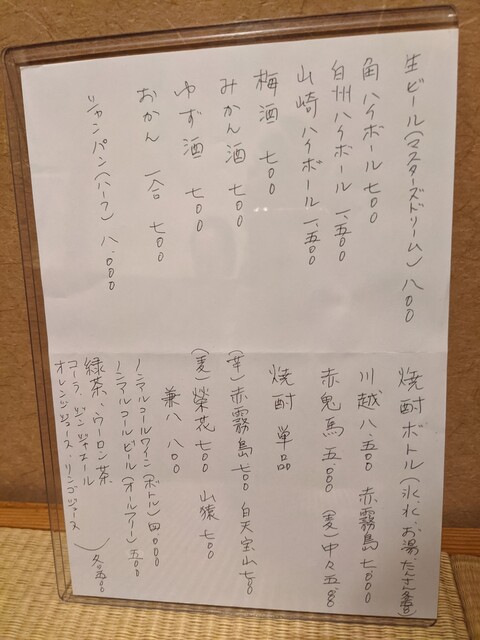 生ビール(マスターズドリーム) 八〇〇
角ハイボール 七〇〇
白州ハイボール 一、五〇〇
山崎ハイボール 一、五〇〇
梅酒 七〇〇
みかん酒 七〇〇
ゆず酒 七〇〇
おかん 一合 七〇〇
シャンパン(ハーフ) 八、〇〇〇
焼酎ボトル(氷、水、お湯、たんさん
川越 八、五〇〇 赤霧島 七、〇〇〇
赤鬼馬 五、〇〇〇 (麦)中々 五、
焼酎 単品
(芋)赤霧島 七〇〇 白天宝山 七〇〇
(麦)榮花 七〇〇 山猿 七〇〇
兼八 八〇〇
ノンアルコールワイン(ボトル) 四〇〇〇
ノンアルコールビール(オールフリー) 五〇〇
緑茶、ウーロン茶
コーラ、ジンジャエール
オレンジジュース、リンゴジュース